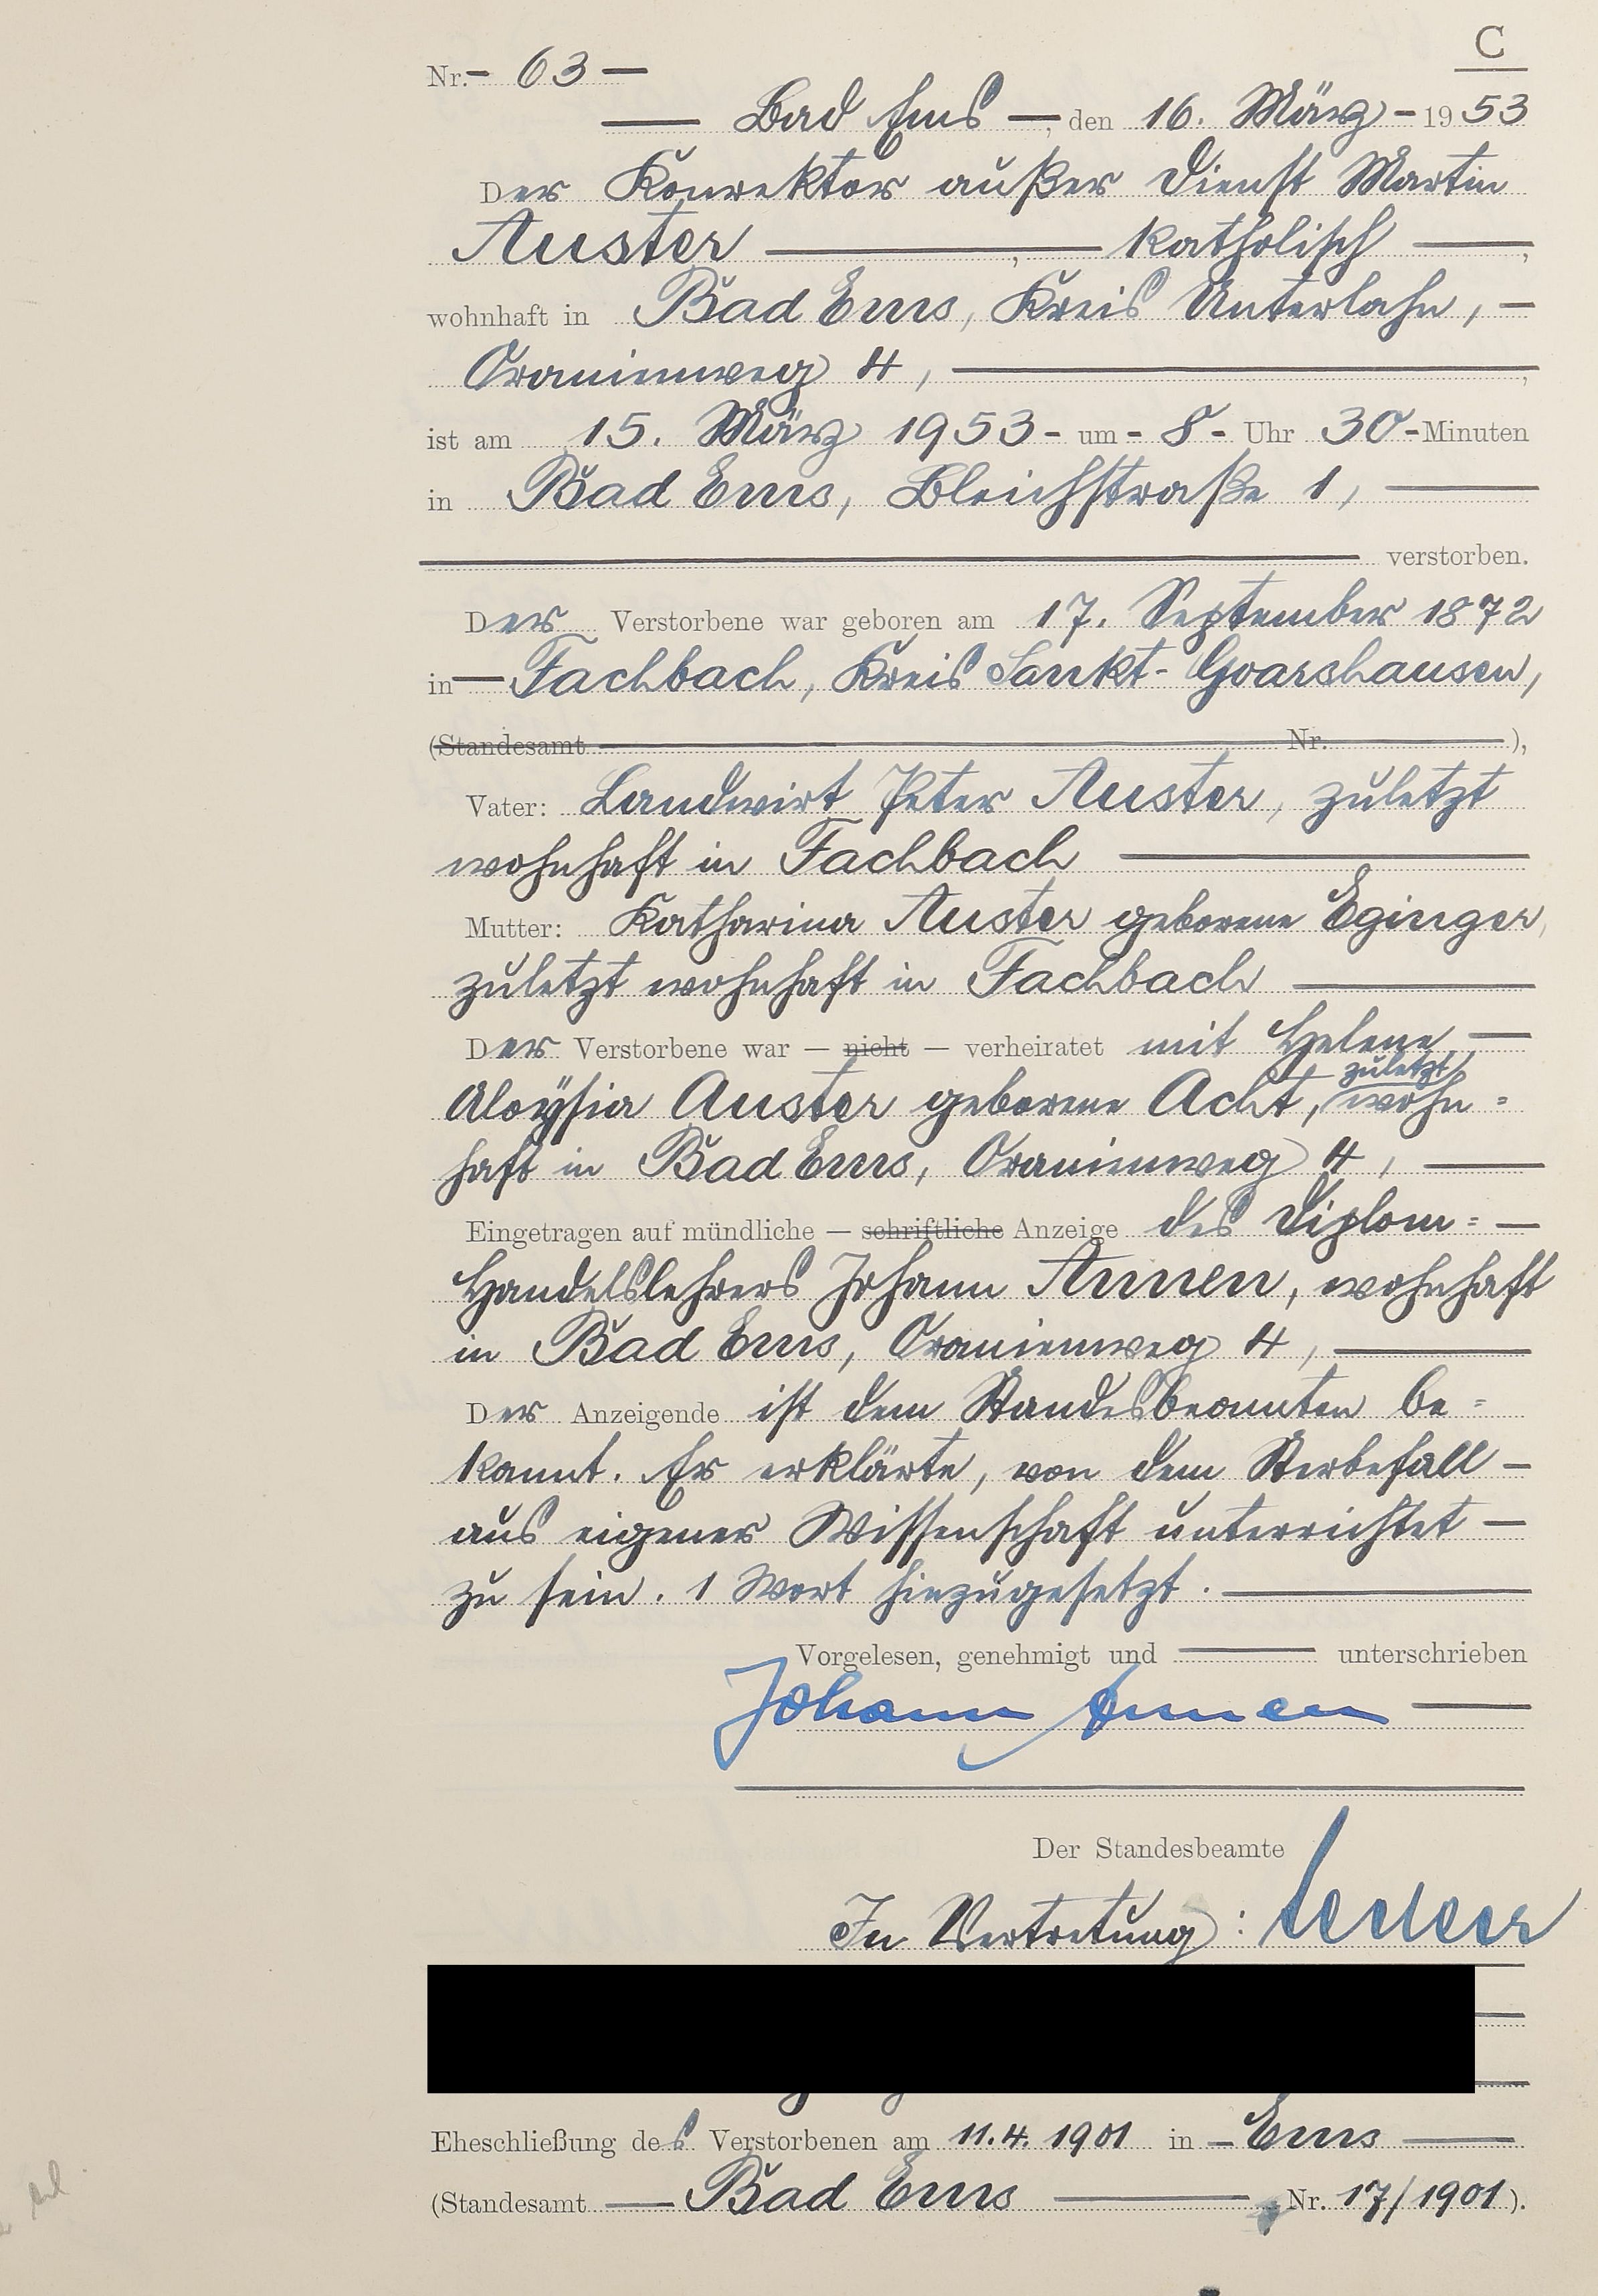 C
Nr. - 63 -
— Bad Ems —, den 16. März - 1953
Der Konrektor außer Dienst Martin
Auster —, — katholisch —,
wohnhaft in Bad Ems, Kreis Unterlahn, —
Oranienweg 4, —,
ist am 15. März 1953 - um - 8 - Uhr 30 - Minuten
in Bad Ems, Bleichstraße 1, —
— verstorben.
Der Verstorbene war geboren am 17. September 1872
in — Fachbach, Kreis Sankt-Goarshausen,
(Standesamt — Nr. —),
Vater: Landwirt Peter Auster, zuletzt
wohnhaft in Fachbach —
Mutter: Katharina Auster geborene Eginger,
zuletzt wohnhaft in Fachbach —
Der Verstorbene war — nicht — verheiratet mit Helene —
zuletzt
Aloÿsia Auster geborene Acht, wohn=
haft in Bad Ems, Oranienweg 4, —
Eingetragen auf mündliche — schriftliche Anzeige des Diplom= —
Handelslehrers Johann Annen, wohnhaft
in Bad Ems, Oranienweg 4, —
Der Anzeigende ist dem Standesbeamten be=
kannt. Er erklärte, von dem Sterbefall —
aus eigener Wissenschaft unterrichtet —
zu sein. 1 Wort hinzugesetzt. —
Vorgelesen, genehmigt und — unterschrieben
Johann Annen —
Der Standesbeamte
In Vertretung:
Eheschließung des Verstorbenen am 11.4.1901 in — Ems —
(Standesamt — Bad Ems — Nr. 17/1901).